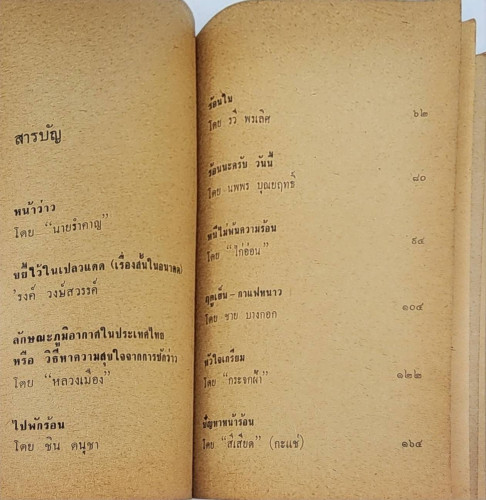 สารบัญ
หน้าว่าว
โดย “นายรำคาญ”
ขยี้ไว้ในเปลวแดด (เรื่องสั้นในอนาคต)
’รงค์ วงษ์สวรรค์
ลักษณะภูมิอากาศในประเทศไทย
หรือ วิธีหาความสุขใจจากการชักว่าว
โดย “หลวงเมือง”
ไปพักร้อน
โดย ชิน ดนุชา
ร้อนใน
โดย รวี พรเลิศ ๖๒
ร้อนนะครับ วันนี้ ๘๐
โดย นพพร บุณยฤทธิ์
หนีไม่พ้นความร้อน ๙๔
โดย “ไก่อ่อน”
ฤดูเย็น – กาแฟหนาว
โดย ชาย บางกอก ๑๐๔
หัวใจเกรียม
โดย “กระจกฝ้า” ๑๒๒
ปัญหาหน้าร้อน
โดย “สีเสียด” (กะแช่) ๑๖๔